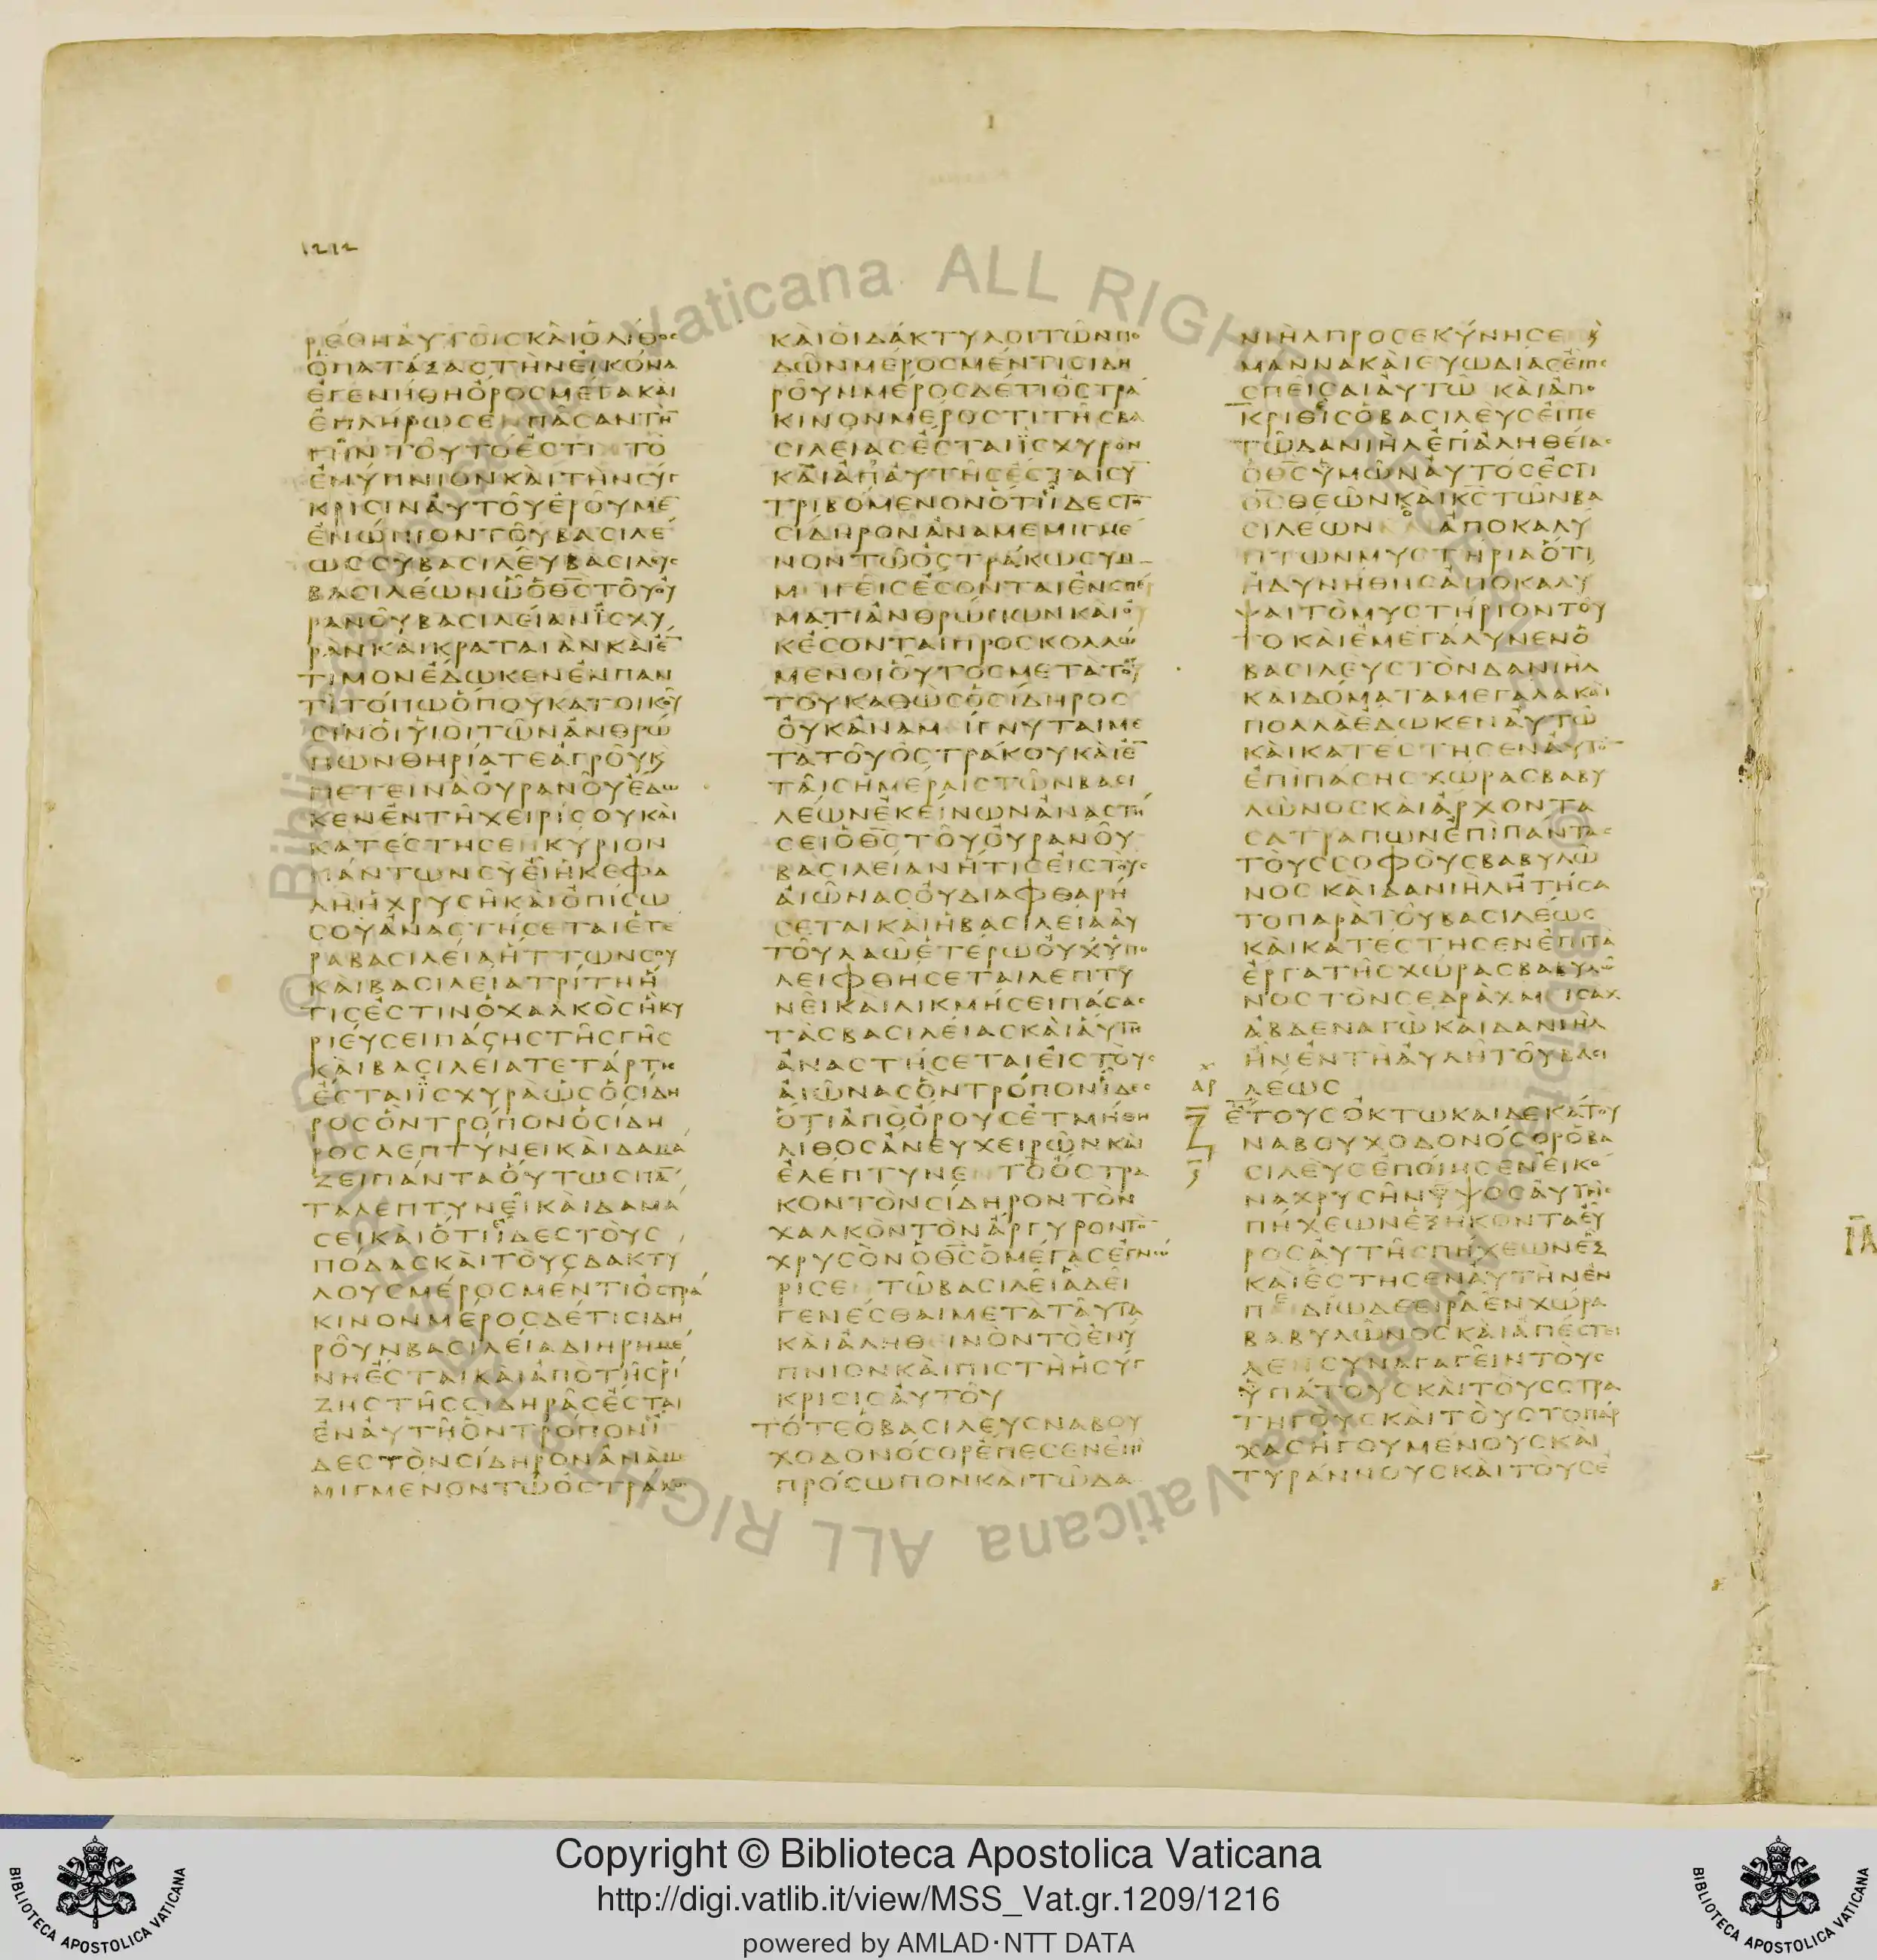 1212
ΡΕΘΗΑΥΤΟΙΣΚΑΙΟΛΙΘΟΣ
ΟΠΑΤΑΞΑΣΤΗΝΕΙΚΟΝΑ
ΕΓΕΝΗΘΗΟΡΟΣΜΕΓΑΚΑΙ
ΕΠΛΗΡΩΣΕΝΠΑΣΑΝΤΗ̅
ΓΗΝΤΟΥΤΟΕΣΤΙΤΟ
ΕΝΥΠΝΙΟΝΚΑΙΤΗΝΣΥΓ
ΚΡΙΣΙΝΑΥΤΟΥΕΡΟΥΜΕ̅
ΕΝΩΠΙΟΝΤΟΥΒΑΣΙΛΕ
ΩΣΣΥΒΑΣΙΛΕΥΒΑΣΙΛΕΥΣ
ΒΑΣΙΛΕΩΝΩΟΘ̅Σ̅ΤΟΥΟΥ
ΡΑΝΟΥΒΑΣΙΛΕΙΑΝΪΣΧΥ
ΡΑΝΚΑΙΚΡΑΤΑΙΑΝΚΑΙΕ̅
ΤΙΜΟΝΕΔΩΚΕΝΕΝΠΑΝ
ΤΙΤΟΠΩΟΠΟΥΚΑΤΟΙΚΟΥ
ΣΙΝΟΙΥΙΟΙΤΩΝΑΝΘΡΩ
ΠΩΝΘΗΡΙΑΤΕΑΓΡΟΥΚϚ
ΠΕΤΕΙΝΑΟΥΡΑΝΟΥΕΔΩ
ΚΕΝΕΝΤΗΧΕΙΡΙΣΟΥΚΑΙ
ΚΑΤΕΣΤΗΣΕΝΚΥΡΙΟΝ
ΠΑΝΤΩΝΣΥΕΙΗΚΕΦΑ
ΛΗΗΧΡΥΣΗΚΑΙΟΠΙΣΩ
ΣΟΥΑΝΑΣΤΗΣΕΤΑΙΕΤΕ
ΡΑΒΑΣΙΛΕΙΑΗΤΤΩΝΣΟΥ
ΚΑΙΒΑΣΙΛΕΙΑΤΡΙΤΗΗ
ΤΙΣΕΣΤΙΝΟΧΑΛΚΟΣΗΚΥ
ΡΙΕΥΣΕΙΠΑΣΗΣΤΗΣΓΗΣ
ΚΑΙΒΑΣΙΛΕΙΑΤΕΤΑΡΤΗ
ΕΣΤΑΙΪΣΧΥΡΑΩΣΟΣΙΔΗ
ΡΟΣΟΝΤΡΟΠΟΝΟΣΙΔΗ
ΡΟΣΛΕΠΤΥΝΕΙΚΑΙΔΑΜΑ
ΖΕΙΠΑΝΤΑΟΥΤΩΣΠΑ̅
ΤΑΛΕΠΤΥΝΕΙΚΑΙΔΑΜΑ
ΣΕΙΚΑΙΟΤΙΪΔΕΣΤΟΥΣ
ΠΟΔΑΣΚΑΙΤΟΥΣΔΑΚΤΥ
ΛΟΥΣΜΕΡΟΣΜΕΝΤΙΟΣΤΡΑ
ΚΙΝΟΝΜΕΡΟΣΔΕΤΙΣΙΔΗ
ΡΟΥΝΒΑΣΙΛΕΙΑΔΙΗΡΗΜΕ
ΝΗΕΣΤΑΙΚΑΙΑΠΟΤΗΣΡΙ
ΖΗΣΤΗΣΣΙΔΗΡΑΣΕΣΤΑΙ
ΕΝΑΥΤΗΟΝΤΡΟΠΟΝΪ
ΔΕΣΤΟΝΣΙΔΗΡΟΝΑΝΑΜ
ΜΙΓΜΕΝΟΝΤΩΟΣΤΡΑΚΩ
ΚΑΙΟΙΔΑΚΤΥΛΟΙΤΩΝΠΟ
ΔΩΝΜΕΡΟΣΜΕΝΤΙΣΙΔΗ
ΡΟΥΝΜΕΡΟΣΔΕΤΙΟΣΤΡΑ
ΚΙΝΟΝΜΕΡΟΣΤΙΤΗΣΒΑ
ΣΙΛΕΙΑΣΕΣΤΑΙΪΣΧΥΡΟΝ
ΚΑΙΑΠΑΥΤΗΣΕΣΤΑΙΣΥ̅
ΤΡΙΒΟΜΕΝΟΝΟΤΙΪΔΕΣΤΟ̅
ΣΙΔΗΡΟΝΑΝΑΜΕΜΙΓΜΕ
ΝΟΝΤΩΟΣΤΡΑΚΩΣΥΜ
ΜΙΓΕΙΣΕΣΟΝΤΑΙΕΝΣΠΕΡ
ΜΑΤΙΑΝΘΡΩΠΩΝΚΑΙΟΥ
ΚΕΣΟΝΤΑΙΠΡΟΣΚΟΛΛΩ
ΜΕΝΟΙΟΥΤΟΣΜΕΤΑΤΟΥ
ΤΟΥΚΑΘΩΣΟΣΙΔΗΡΟΣ
ΟΥΚΑΝΑΜΙΓΝΥΤΑΙΜΕ
ΤΑΤΟΥΟΣΤΡΑΚΟΥΚΑΙΕ̅
ΤΑΙΣΗΜΕΡΑΙΣΤΩΝΒΑΣΙ
ΛΕΩΝΕΚΕΙΝΩΝΑΝΑΣΤΗ
ΣΕΙΟΘ̅Σ̅ΤΟΥΟΥΡΑΝΟΥ
ΒΑΣΙΛΕΙΑΝΗΤΙΣΕΙΣΤΟΥΣ
ΑΙΩΝΑΣΟΥΔΙΑΦΘΑΡΗ
ΣΕΤΑΙΚΑΙΗΒΑΣΙΛΕΙΑΑΥ
ΤΟΥΛΑΩΕΤΕΡΩΟΥΧΥΠΟ
ΛΕΙΦΘΗΣΕΤΑΙΛΕΠΤΥ
ΝΕΙΚΑΙΛΙΚΜΗΣΕΙΠΑΣΑΣ
ΤΑΣΒΑΣΙΛΕΙΑΣΚΑΙΑΥΤΗ
ΑΝΑΣΤΗΣΕΤΑΙΕΙΣΤΟΥΣ
ΑΙΩΝΑΣΟΝΤΡΟΠΟΝΪΔΕΣ
ΟΤΙΑΠΟΟΡΟΥΣΕΤΜΗΘΗ
ΛΙΘΟΣΑΝΕΥΧΕΙΡΩΝΚΑΙ
ΕΛΕΠΤΥΝΕΝΤΟΟΣΤΡΑ
ΚΟΝΤΟΝΣΙΔΗΡΟΝΤΟΝ
ΧΑΛΚΟΝΤΟΝΑΡΓΥΡΟΝΤΟ̅
ΧΡΥΣΟΝΟΘ̅Σ̅ΟΜΕΓΑΣΕΓΝΩ
ΡΙΣΕΝΤΩΒΑΣΙΛΕΙΑΔΕΙ
ΓΕΝΕΣΘΑΙΜΕΤΑΤΑΥΤΑ
ΚΑΙΑΛΗΘΕΙΝΟΝΤΟΕΝΥ
ΠΝΙΟΝΚΑΙΠΙΣΤΗΗΣΥΓ
ΚΡΙΣΙΣΑΥΤΟΥ
ΤΟΤΕΟΒΑΣΙΛΕΥΣΝΑΒΟΥ
ΧΟΔΟΝΟΣΟΡΕΠΕΣΕΝΕΠΙ
ΠΡΟΣΩΠΟΝΚΑΙΤΩΔΑ
ΝΙΗΛΠΡΟΣΕΚΥΝΗΣΕΝϚ
ΜΑΝΝΑΚΑΙΕΥΩΔΙΑΣΕΙΠΕ
ΣΠΕΙΣΑΙΑΥΤΩΚΑΙΑΠΟ
ΚΡΙΘΕΙΣΟΒΑΣΙΛΕΥΣΕΙΠΕ
ΤΩΔΑΝΙΗΛΕΠΑΛΗΘΕΙΑΣ
ΟΘ̅Σ̅ΥΜΩΝΑΥΤΟΣΕΣΤΙ
ΘΣΘΕΩΝΚΑΙΚ̅Σ̅ΤΩΝΒΑ
ΣΙΛΕΩΝΟΑΠΟΚΑΛΥ
ΠΤΩΝΜΥΣΤΗΡΙΑΟΤΙ
ΗΔΥΝΗΘΗΣΑΠΟΚΑΛΥ
ΨΑΙΤΟΜΥΣΤΗΡΙΟΝΤΟΥ
ΤΟΚΑΙΕΜΕΓΑΛΥΝΕΝΟ
ΒΑΣΙΛΕΥΣΤΟΝΔΑΝΙΗΛ
ΚΑΙΔΟΜΑΤΑΜΕΓΑΛΑΚΑΙ
ΠΟΛΛΑΕΔΩΚΕΝΑΥΤΩ
ΚΑΙΚΑΤΕΣΤΗΣΕΝΑΥΤΟ̅
ΕΠΙΠΑΣΗΣΧΩΡΑΣΒΑΒΥ
ΛΩΝΟΣΚΑΙΑΡΧΟΝΤΑ
ΣΑΤΡΑΠΩΝΕΠΙΠΑΝΤΑΣ
ΤΟΥΣΣΟΦΟΥΣΒΑΒΥΛΩ
ΝΟΣΚΑΙΔΑΝΙΗΛΗΤΗΣΑ
ΤΟΠΑΡΑΤΟΥΒΑΣΙΛΕΩΣ
ΚΑΙΚΑΤΕΣΤΗΣΕΝΕΠΙΤΑ
ΕΡΓΑΤΗΣΧΩΡΑΣΒΑΒΥΛΩ
ΝΟΣΤΟΝΣΕΔΡΑΧΜΙΣΑΧ
ΑΒΔΕΝΑΓΩΚΑΙΔΑΝΙΗΛ
ΗΝΕΝΤΗΑΥΛΗΤΟΥΒΑΣΙ
ΛΕΩΣ
ΕΤΟΥΣΟΚΤΩΚΑΙΔΕΚΑΤΟΥ
ΝΑΒΟΥΧΟΔΟΝΟΣΟΡΟΒΑ
ΣΙΛΕΥΣΕΠΟΙΗΣΕΝΕΙΚΟ
ΝΑΧΡΥΣΗΝΥΨΟΣΑΥΤΗΣ
ΠΗΧΕΩΝΕΞΗΚΟΝΤΑΕΥ
ΡΟΣΑΥΤΗΣΠΗΧΕΩΝΕΞ
ΚΑΙΕΣΤΗΣΕΝΑΥΤΗΝΕΝ
ΠΕΔΙΩΔΕΕΙΡΑΕΝΧΩΡΑ
ΒΑΒΥΛΩΝΟΣΚΑΙΑΠΕΣΤΕΙ
ΛΕΝΣΥΝΑΓΑΓΕΙΝΤΟΥΣ
ΥΠΑΤΟΥΣΚΑΙΤΟΥΣΣΤΡΑ
ΤΗΓΟΥΣΚΑΙΤΟΥΣΤΟΠΑΡ
ΧΑΣΗΓΟΥΜΕΝΟΥΣΚΑΙ
ΤΥΡΑΝΝΟΥΣΚΑΙΤΟΥΣΕ
Copyright © Biblioteca Apostolica Vaticana
http://digi.vatlib.it/view/MSS_Vat.gr.1209/1216
powered by AMLAD·NTT DATA
BIBLIOTECA APOSTOLICA VATICANA
BIBLIOTECA APOSTOLICA VATICANA